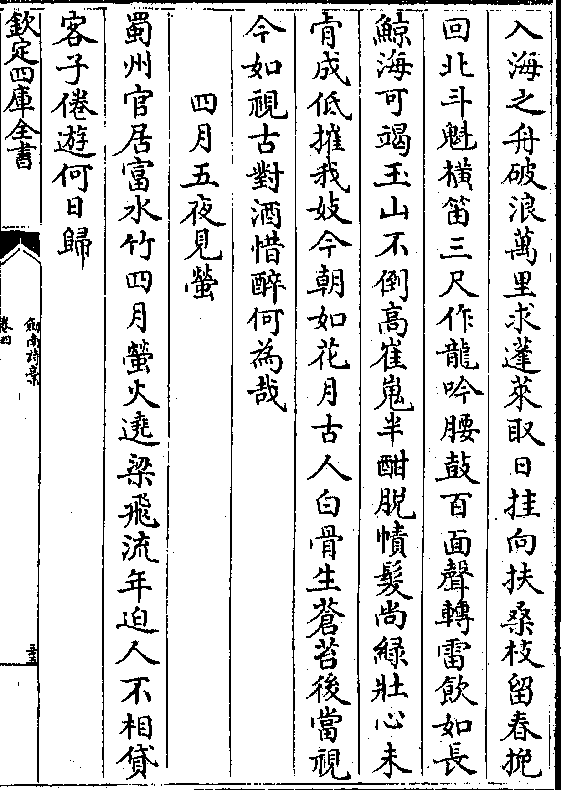 入海之舟破浪萬里求蓬萊取日挂向扶桑枝留春挽
回北斗魁橫笛三尺作龍吟腰鼓百面聲轉雷飲如長
鯨海可竭玉山不倒高崔嵬半酣脫幘髮尚綠壯心未
肯成低摧我妓今朝如花月古人白骨生蒼苔後當視
今如視古對酒惜醉何為哉
四月五夜見螢
蜀州官居富水竹四月螢火遶梁飛流年迫人不相貸
客子倦遊何日歸
欽定四庫全書
劍南詩稾
卷四